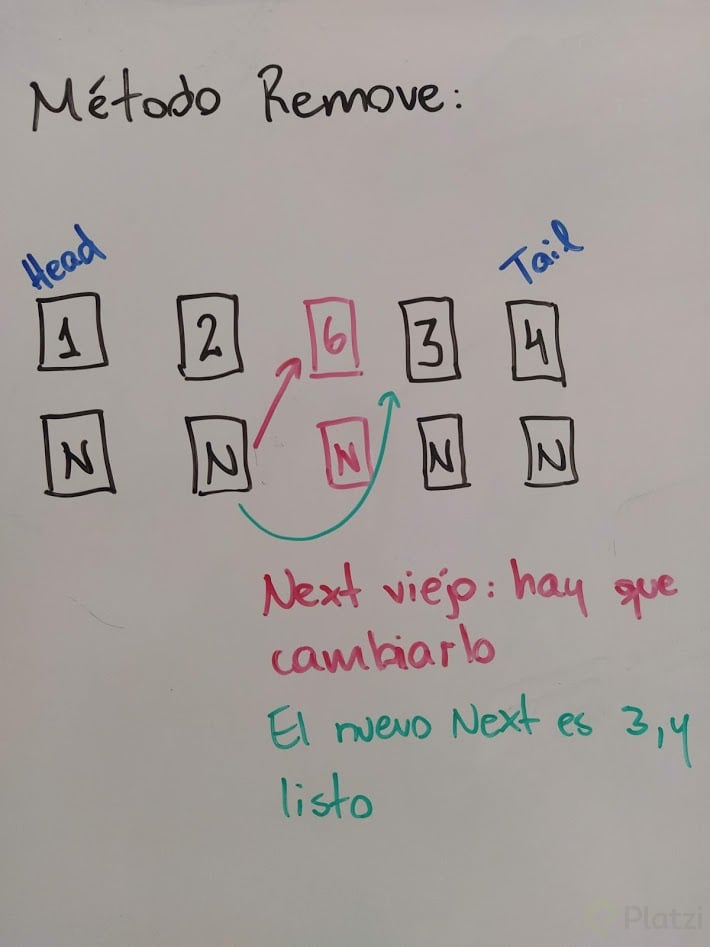 Método Remove:
Head
Tail
1 2 6 3 4
N N N N N
Next viejo: hay que
cambiarlo
El nuevo Next es 3, y
listo
Platzi